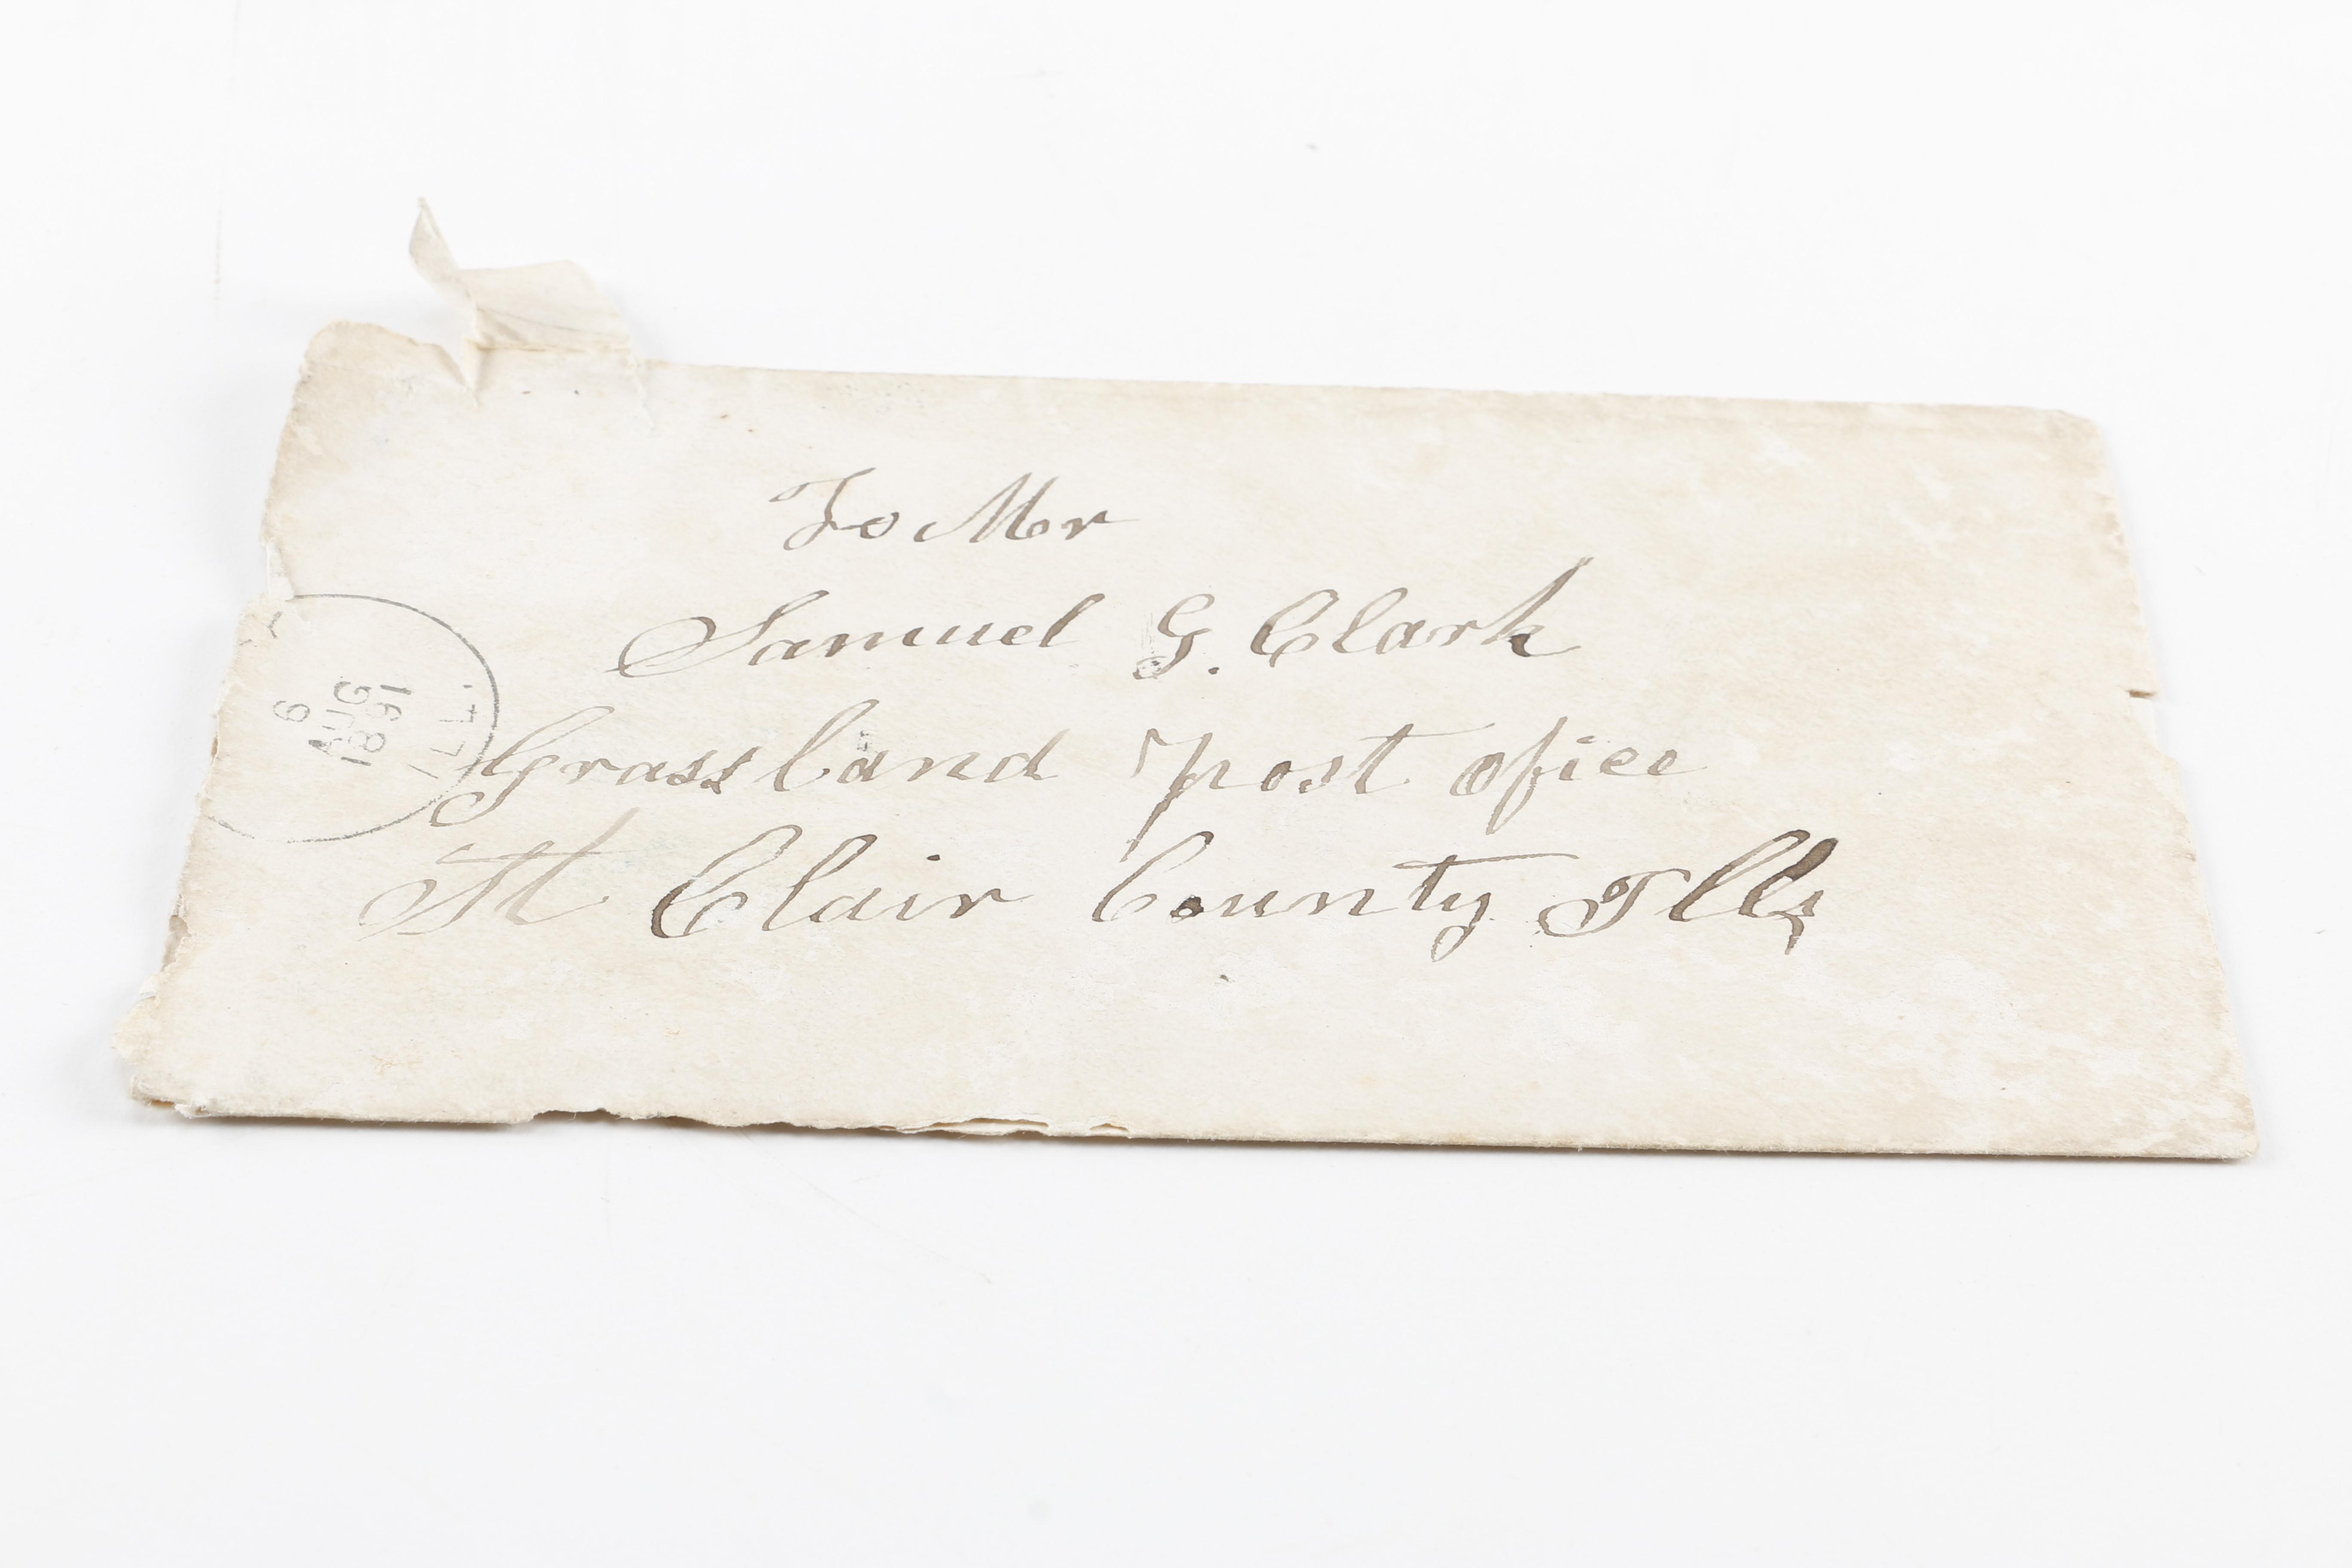 To Mr
Samuel G. Clark
Grassland post ofice
St Clair County Ills
6
AUG
1891
ILL.